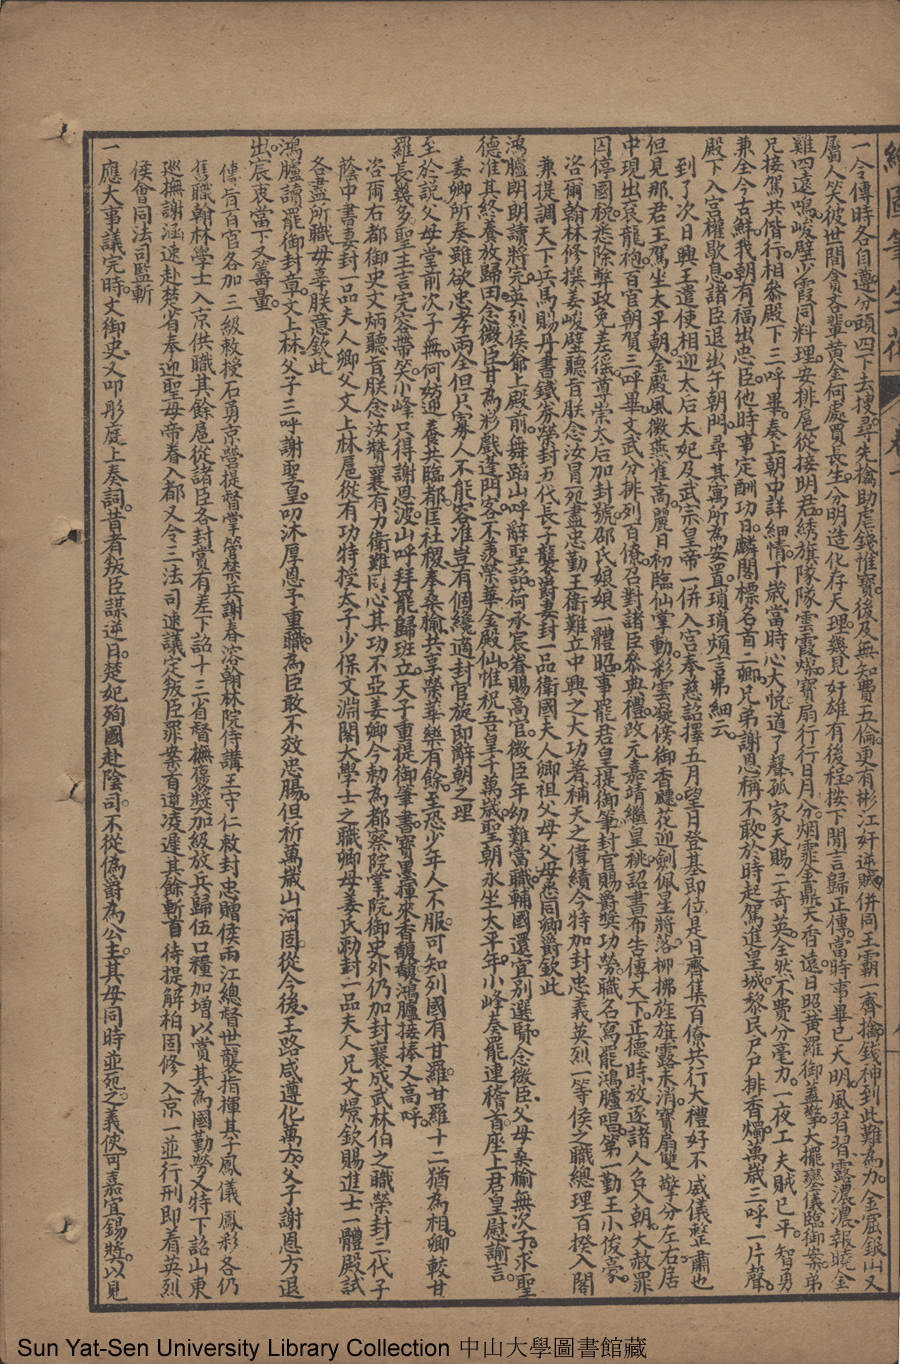 繪圖筆生花 卷十
一令傳時各自遵。分頭四下去搜尋。先擒助虐錢惟寶。後及無知費五倫。更有彬江奸逆賊。併同王霸一齊擒。錢神到此難為力。金窟銀山又
屬人。笑彼世間貪吝輩。黃金何處買長生。分明造化存天理。幾見奸雄有後程。按下閒言歸正傳。當時事畢已天明。風習習。露濃濃。報曉金
雞四遠鳴。峻壁少霞同料理。安排扈從接明君。繡旗隊隊雲霞燦。寶扇行行日月分。烟霏金鼎天香遠。日照黃羅御蓋擎。大擺鑾儀臨御寨。弟
兄接駕共偕行。相叅殿下三呼畢。奏上朝中詳細情。千歲當時心大悅。道了聲孤家天賜二奇英。全然不費分毫力。一夜工夫賊已平。智勇
兼全今古鮮。我朝有福出忠臣。他時事定酬功日。麟閣標名首二卿。兄弟謝恩稱不敢。於時起駕進皇城。黎民戶戶排香燭。萬歲三呼一片聲。
殿下入宮權歇息。諸臣退出午朝門。尋其寓所為安置。瑣瑣煩言弗細云。
到了次日興王遣使相迎太后太妃及武宗皇帝一併入宮奉慈詔擇五月望日登基即位是日齊集百僚共行大禮好不威儀整肅也
但見那君王駕坐太平朝。金殿風微燕雀高。麗日初臨仙掌動。彩雲凝傍御香飄。花迎劍佩星將落。柳拂旌旗露未消。寶扇雙擎分左右。居
中現出袞龍袍。百官朝賀三呼畢。文武分排列百僚。召對諸臣叅典禮。改元嘉靖繼皇祧。詔書布告傳天下。正德時放逐諸人名入朝。大赦罪
囚停國稅。悉除弊政免差徭。尊崇太后加封號。邵氏娘娘一體昭。事罷君皇提御筆。封官賜爵獎功勞。職名寫罷鴻臚唱。第一勤王小俊豪。
咨爾翰林修撰姜峻壁聽旨朕念汝冒死盡忠勤王衛難立中興之大功著補天之偉績今特加封忠義英烈一等侯之職總理百揆入閣
兼提調天下兵馬賜丹書鐵券榮封五代長子襲爵妻封一品衛國夫人卿祖父母父母悉同卿爵欽此
鴻臚朗朗讀將完。英烈侯爺上殿前。舞蹈山呼辭聖詔。荷承宸眷賜高官。微臣年幼難當職。輔國還宜別選賢。念微臣父母桑榆無次子。求聖
德准其終養放歸田。念微臣甘為彩戲蓬門客。不羨榮華金殿仙。惟祝吾皇千萬歲。聖朝永坐太平年。小峰奏罷連稽首。座上君皇慰諭言。
姜卿所奏雖欲忠孝兩全但只寡人不能容准豈有個纔適封官旋即辭朝之理
至於說父母堂前次子無。何妨迎養共臨都。匡社稷。奉桑榆。共享榮華樂有餘。至恐少年人不服。可知列國有甘羅。甘羅十二猶為相。卿較甘
羅長幾多。聖主言完容帶笑。小峰只得謝恩波。山呼拜罷歸班立。天子重提御筆書。寶墨揮來香馥馥。鴻臚接捧又高呼。
咨爾右都御史文炳聽旨朕念汝贊襄有力衛難同心其功不亞姜卿今勅為都察院掌院御史外仍加封襄成武林伯之職榮封二代子
蔭中書妻封一品夫人卿父文上林扈從有功特授太子少保文淵閣大學士之職卿母姜氏勅封一品夫人兄文燎欽賜進士一體殿試
各盡所職毋辜朕意欽此
鴻臚讀罷御封章。文上林父子三呼謝聖皇。叨沐厚恩予重職。為臣敢不效忠腸。但祈萬歲山河固。從今後王路咸遵化萬方。父子謝恩方退
出。宸衷當下又籌量。
傳旨百官各加三級敕授石勇京營提督掌管禁兵謝春溶翰林院侍講王守仁敕封忠贈侯兩江總督世襲指揮其子鳳儀鳳彩各仍
舊職翰林學士入京供職其餘扈從諸臣各封賞有差下詔十三省督撫褒獎加級放兵歸伍口糧加增以賞其為國勤勞又特下詔山東
巡撫謝涵速赴楚省奉迎聖母帝眷入都又令三法司速議定叛臣罪案首逆凌遲其餘斬首待提解柏固修入京一並行刑即着英烈
侯會同法司監斬
一應大事議完時。文御史又叩彤庭上奏詞。昔者叛臣謀逆日。楚妃殉國赴陰司。不從偽爵為公主。其母同時並死之。義俠可嘉宜錫獎。以見
Sun Yat-Sen University Library Collection 中山大學圖書館藏